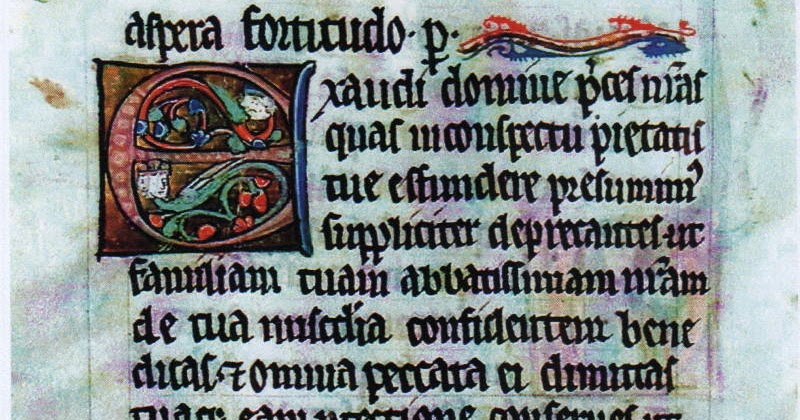 aspera fortitudo · p̱ ·
Exaudi domine p̄ces nr̄as
quas in conspectu pietatis
tue effundere presumim⁹
suppliciter deprecantes·ut
familiam tuam abbatissimam nr̄am
de tua misc̄dia confidentem bene
dicas·⁊ omnia peccata ei dimittas